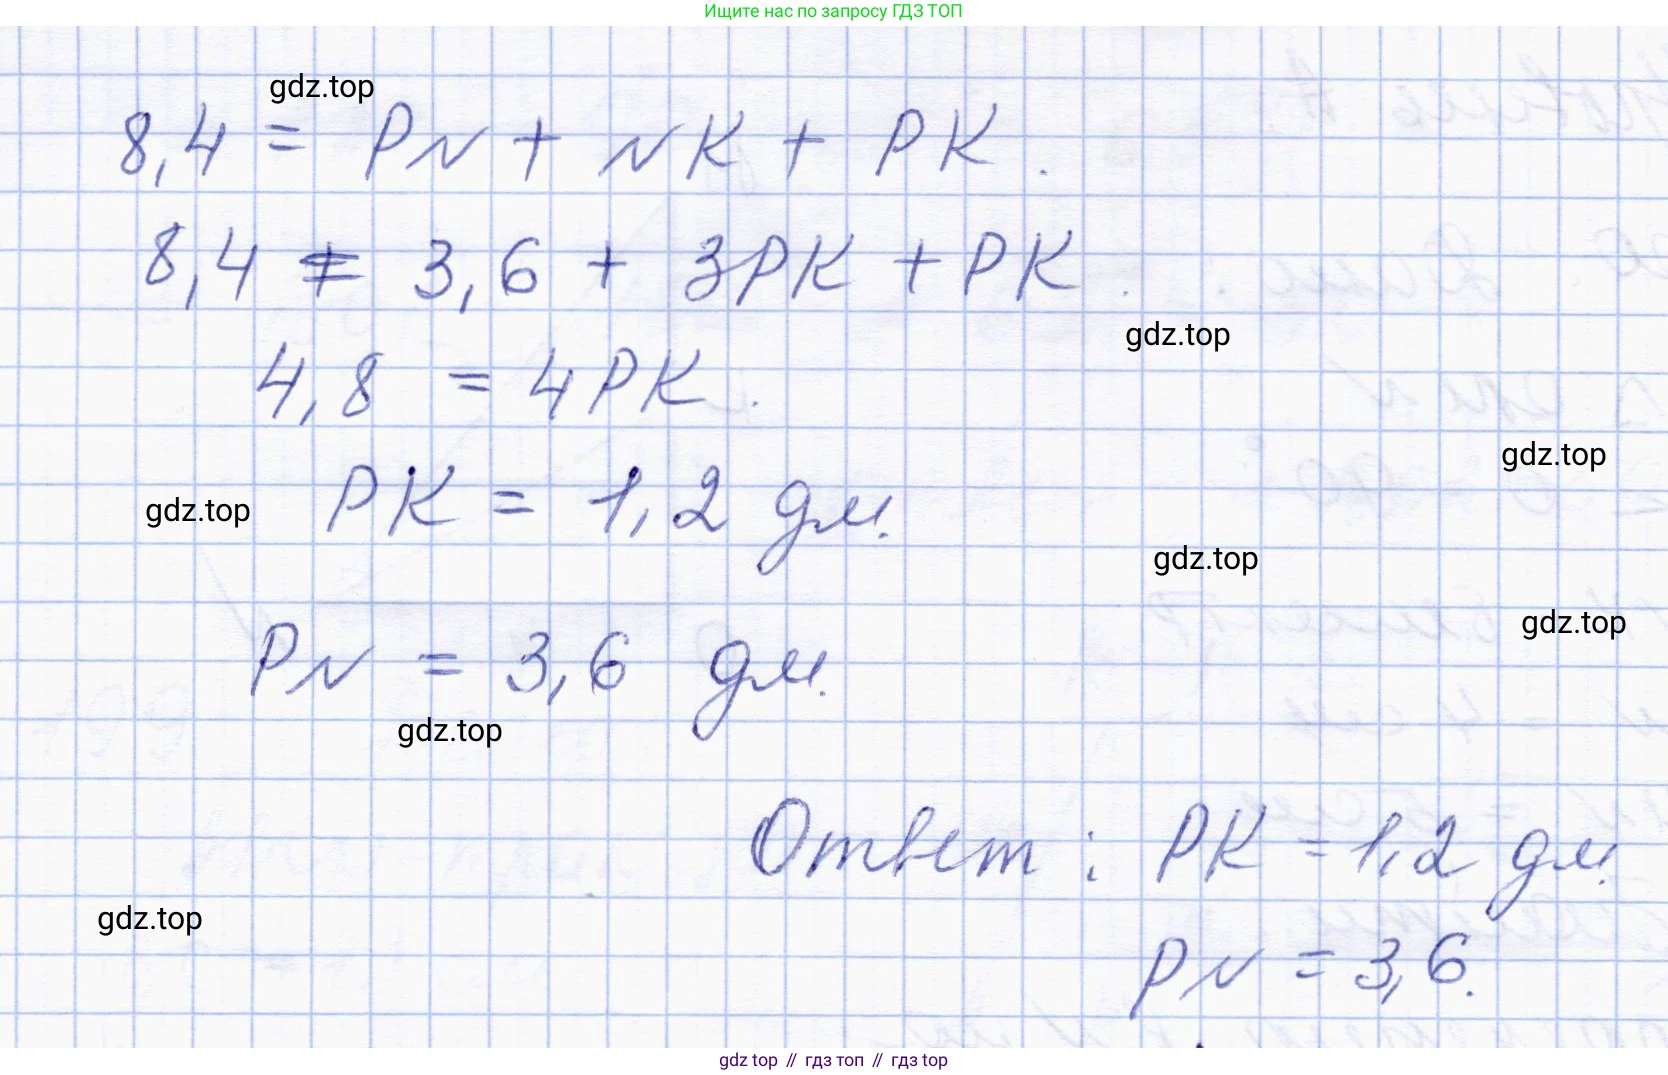 Ищите нас по запросу ГДЗ ТОП
gdz.top
8,4 = PN + NK + PK.
8,4 = 3,6 + 3PK + PK.
gdz.top
4,8 = 4PK.
gdz.top
gdz.top
PK = 1,2 дм.
gdz.top
gdz.top
PN = 3,6 дм.
gdz.top
Ответ: PK = 1,2 дм.
gdz.top
PN = 3,6.
gdz top // гдз топ // гдз top